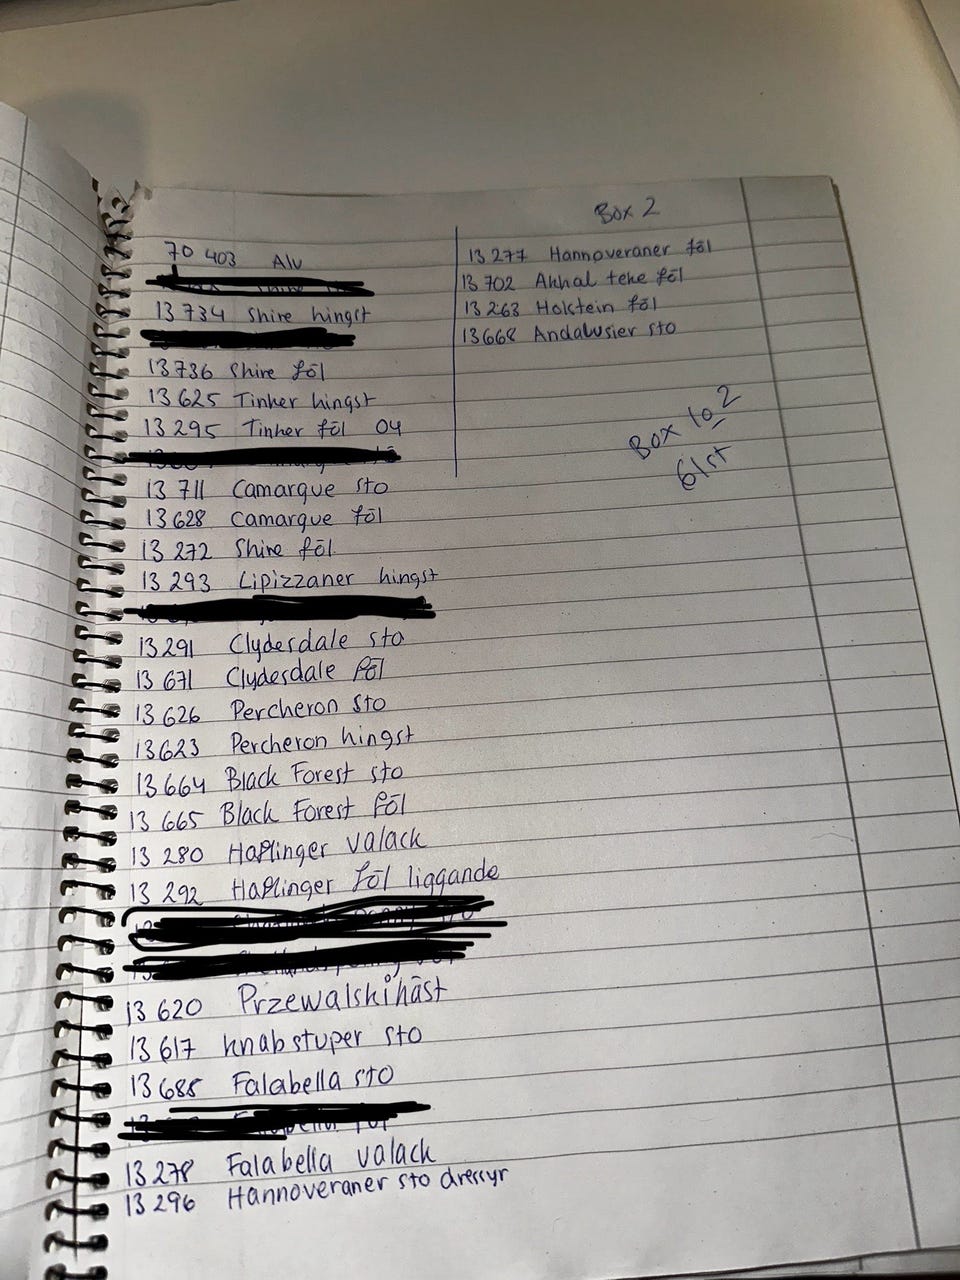 Box 2
70 403 Alv
13 734 Shire hingst
13 736 Shire föl
13 625 Tinker hingst
13 295 Tinker föl 04
13 711 Camarque sto
13 628 Camarque föl
13 272 Shire föl
13 293 Lipizzaner hingst
13 291 Clydesdale sto
13 671 Clydesdale föl
13 626 Percheron sto
13 623 Percheron hingst
13 664 Black Forest sto
13 665 Black Forest föl
13 280 Haflinger valack
13 292 Haflinger föl liggande
13 620 Przewalskihäst
13 617 knabstuper sto
13 685 Falabella sto
13 278 Falabella valack
13 296 Hannoveraner sto dressyr
13 277 Hannoveraner föl
13 702 Akhal teke föl
13 263 Holstein föl
13 668 Andalusier sto
Box 1o 2
61st